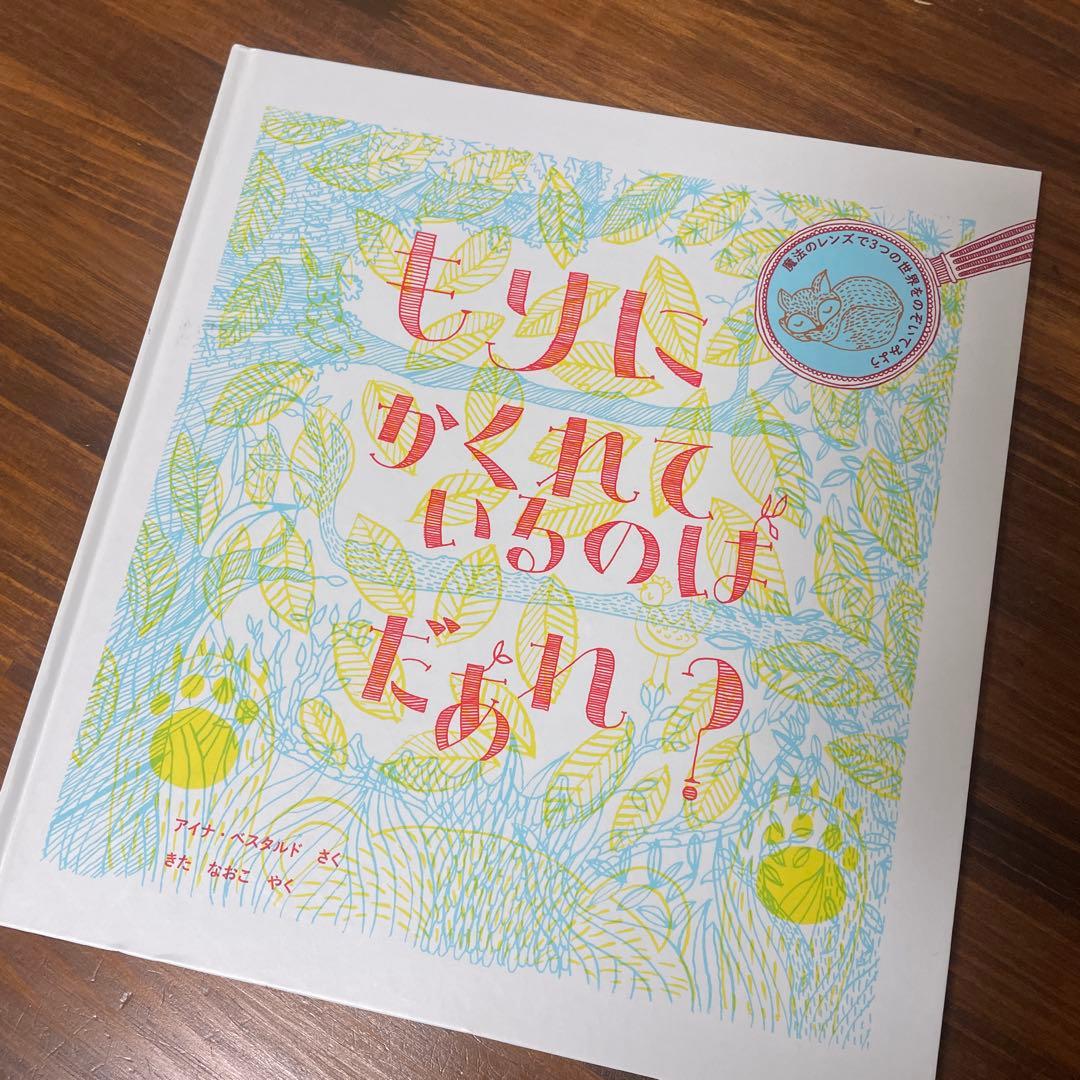 もりに
かくれて
いるのは
だあれ?
魔法のレンズで3つの世界をのぞいてみよう
アイナ・ベスタルド さく
きた なおこ やく